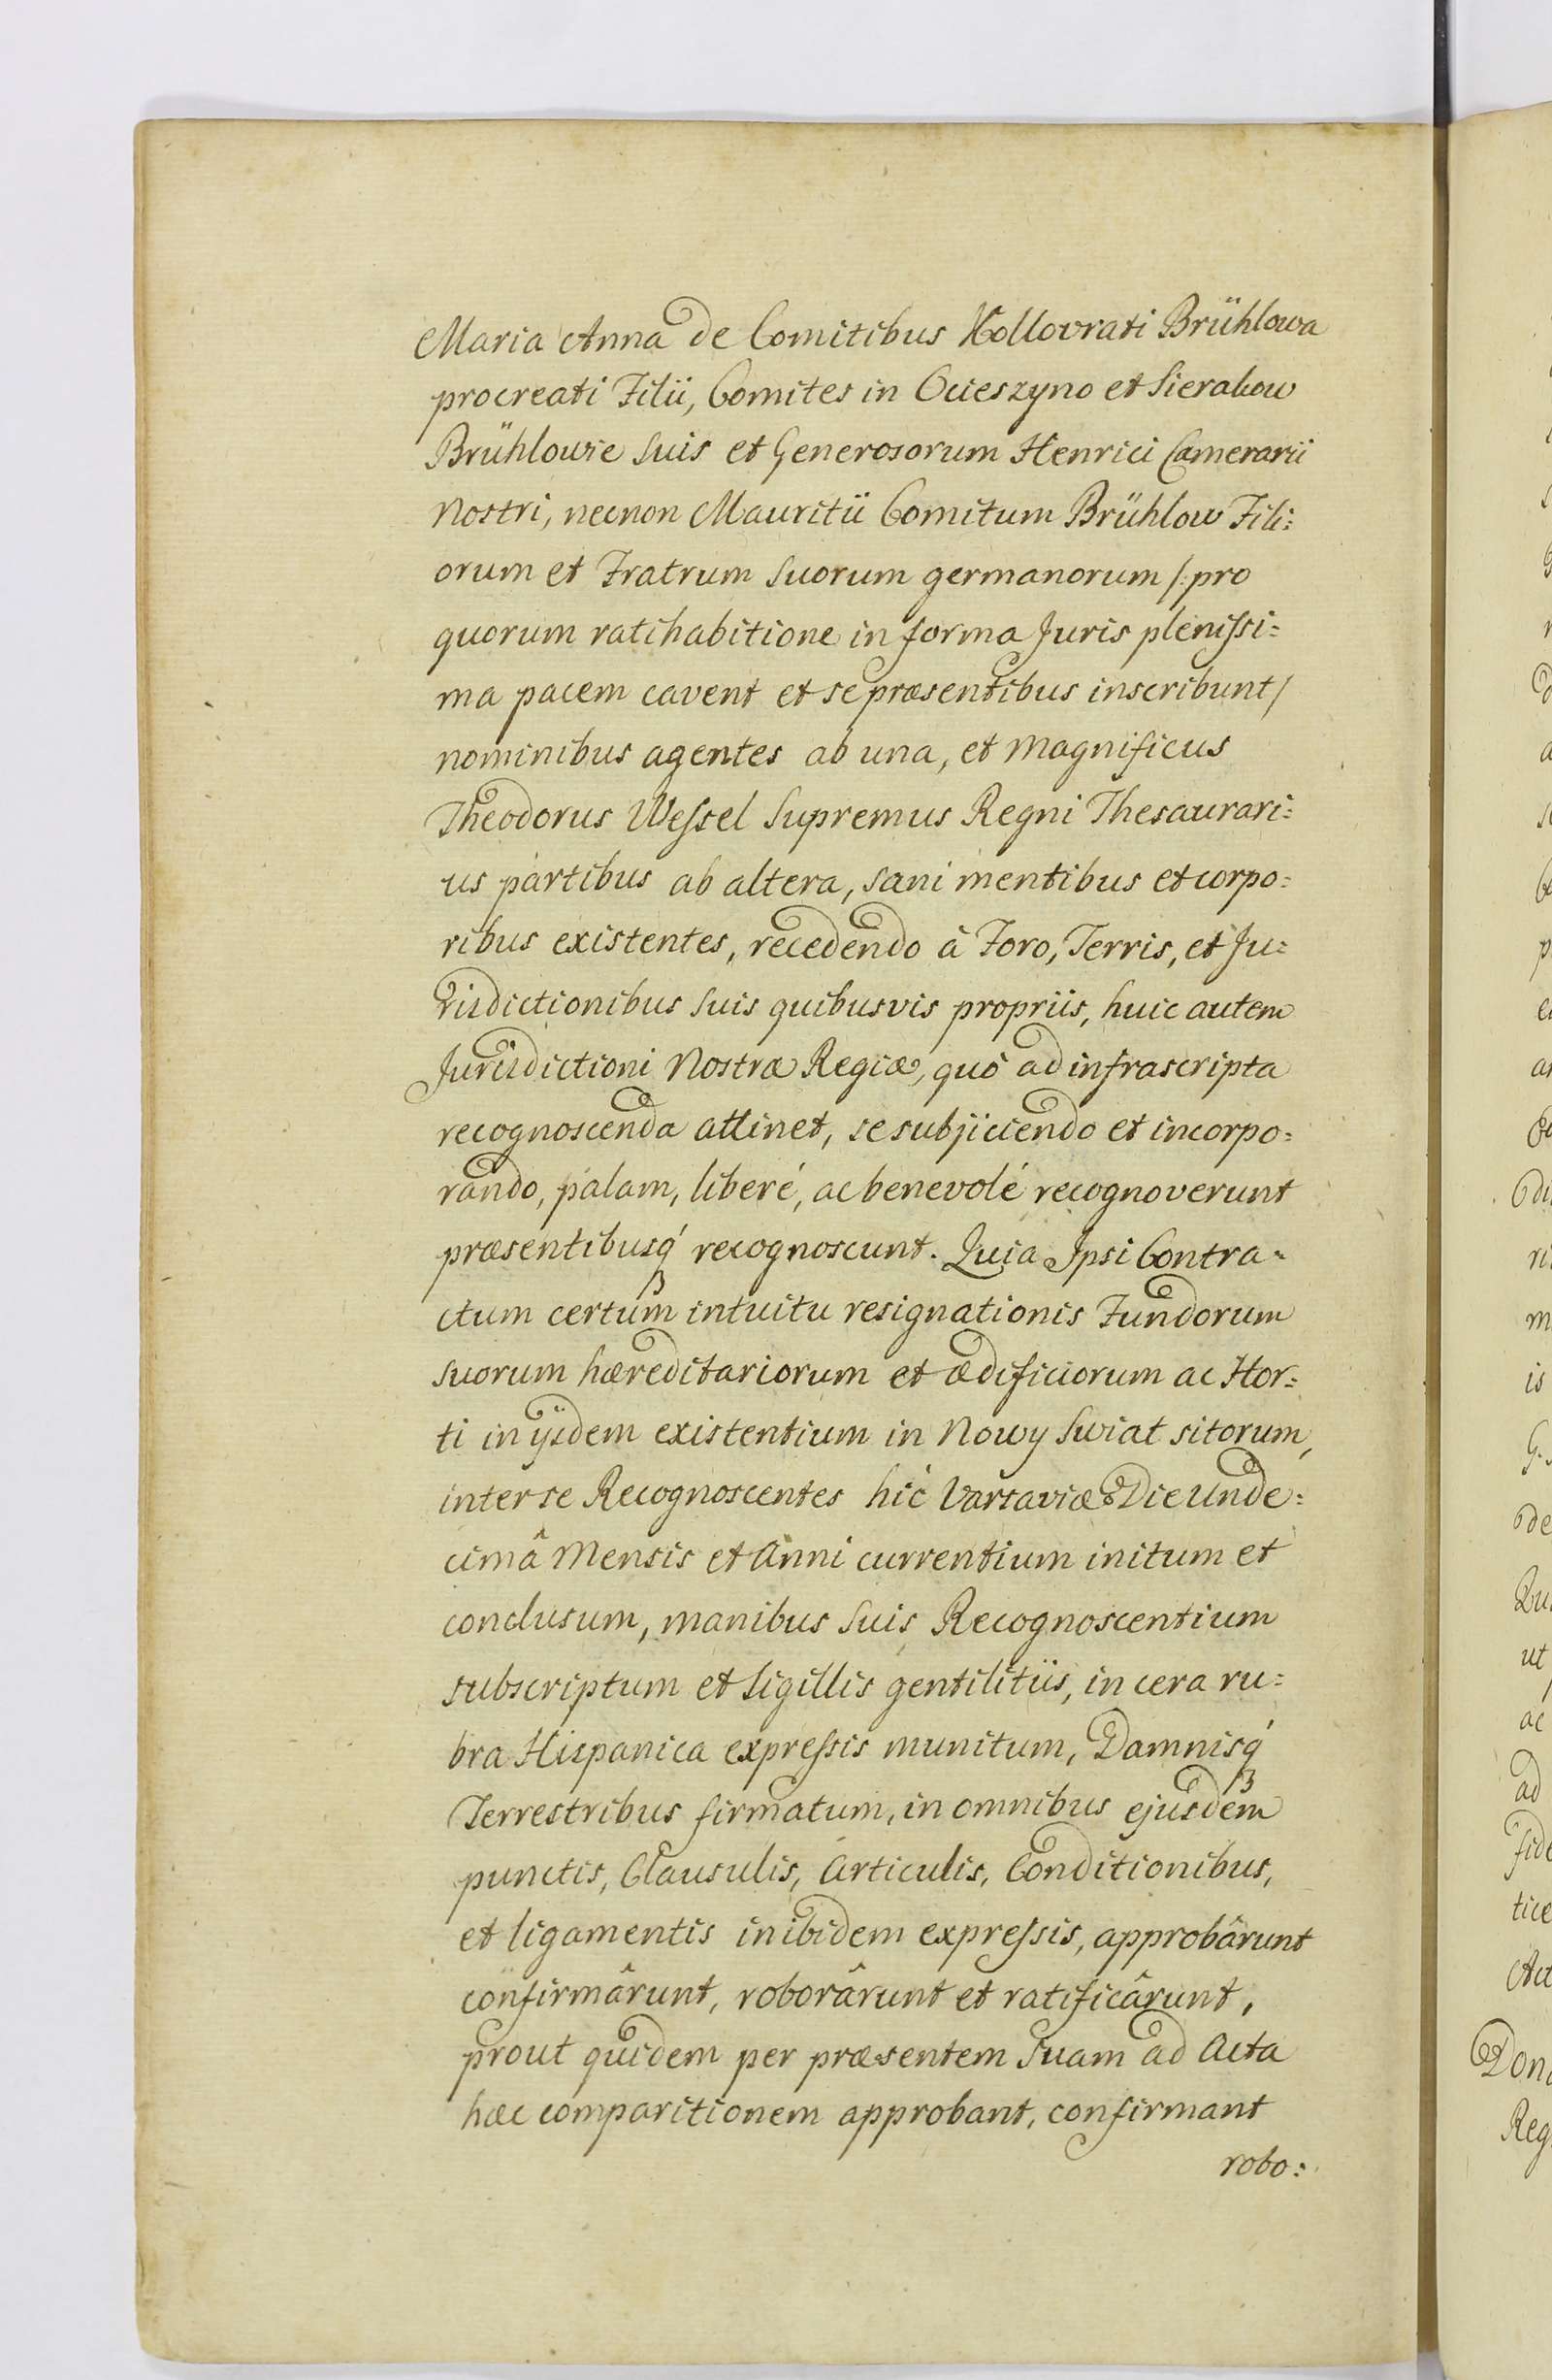 Maria Anna de Comitibus Kollovrati Brühlowa
procreati Filii, Comites in Ocieszyno et Sierakow
Brühlowie Suis et Generosorum Henrici Camerarii
Nostri, necnon Mauritii Comitum Brühlow Fili:
orum et Fratrum Suorum germanorum /: pro
quorum ratihabitione in forma Juris plenissi:
ma pacem cavent et se præsentibus inscribunt /
nominibus agentes ab una, et Magnificus
Theodorus Wessel Supremus Regni Thesaurari:
us partibus ab altera, sani mentibus et corpo:
ribus existentes, recedendo â Foro, Terris, et Ju:
risdictionibus Suis quibusvis propriis, huic autem
Jurisdictioni Nostræ Regiæ, quò ad infrascripta
recognoscenda attinet, se subjiciendo et incorpo:
rando, palam, liberé, ac benevolé recognoverunt
præsentibusq́ recognoscunt. Quia Ipsi Contra:
ctum certum intuitu resignationis Fundorum
suorum hæreditariorum et ædificiorum ac Hor:
ti in ÿsdem existentium in Nowy Swiat sitorum,
inter se Recognoscentes hic Varsaviæ Die Unde:
cimâ Mensis et Anni currentium initum et
conclusum, manibus Suis Recognoscentium
subscriptum et Sigillis gentilitiis, in cera ru:
bra Hispanica expressis munitum, Damnisq́
Terrestribus firmatum, in omnibus ejusdem
punctis, Clausulis, Articulis, Conditionibus,
et ligamentis inibidem expressis, approbârunt
confirmârunt, roborârunt et ratificârunt,
prout quidem per præsentem Suam ad Acta
hæc comparitionem approbant, confirmant
robo: